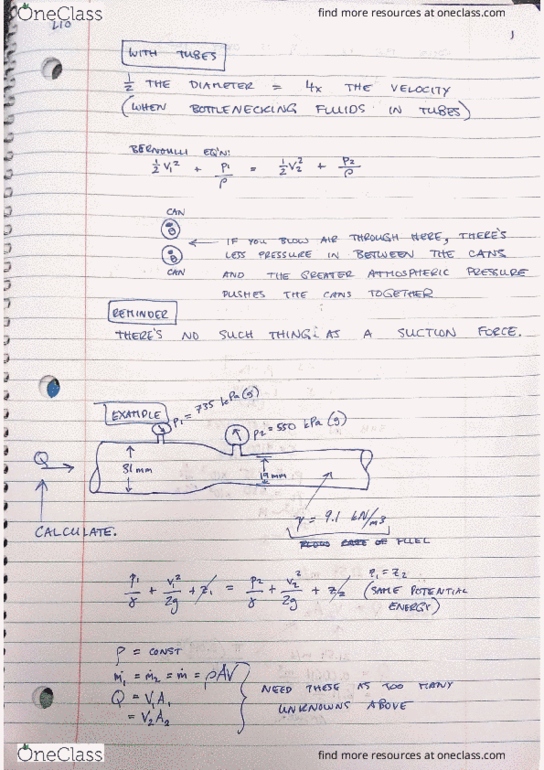 OneClass
find more resources at oneclass.com
L10
1
WITH TUBES
1/2 THE DIAMETER = 4x THE VELOCITY
(WHEN BOTTLENECKING FLUIDS IN TUBES)
BERNOULLI EQ'N:
1/2 V₁² + P₁/ρ = 1/2 V₂² + P₂/ρ
CAN
← IF YOU BLOW AIR THROUGH HERE, THERE'S
LESS PRESSURE IN BETWEEN THE CANS
CAN
AND THE GREATER ATMOSPHERIC PRESSURE
PUSHES THE CANS TOGETHER
REMINDER
THERE'S NO SUCH THING AS A SUCTION FORCE.
EXAMPLE
P₁ = 735 kPa (g)
P₂ = 550 kPa (g)
Q →
31mm
19mm
CALCULATE.
γ = 9.1 kN/m³
OF FUEL
P₁/γ + V₁²/2g + z₁ = P₂/γ + V₂²/2g + z₂
z₁ = z₂
(SAME POTENTIAL
ENERGY)
ρ = CONST
ṁ₁ = ṁ₂ = ṁ = ρAV
Q = V₁A₁
= V₂A₂
NEED THESE AS TOO MANY
UNKNOWNS ABOVE
OneClass
find more resources at oneclass.com